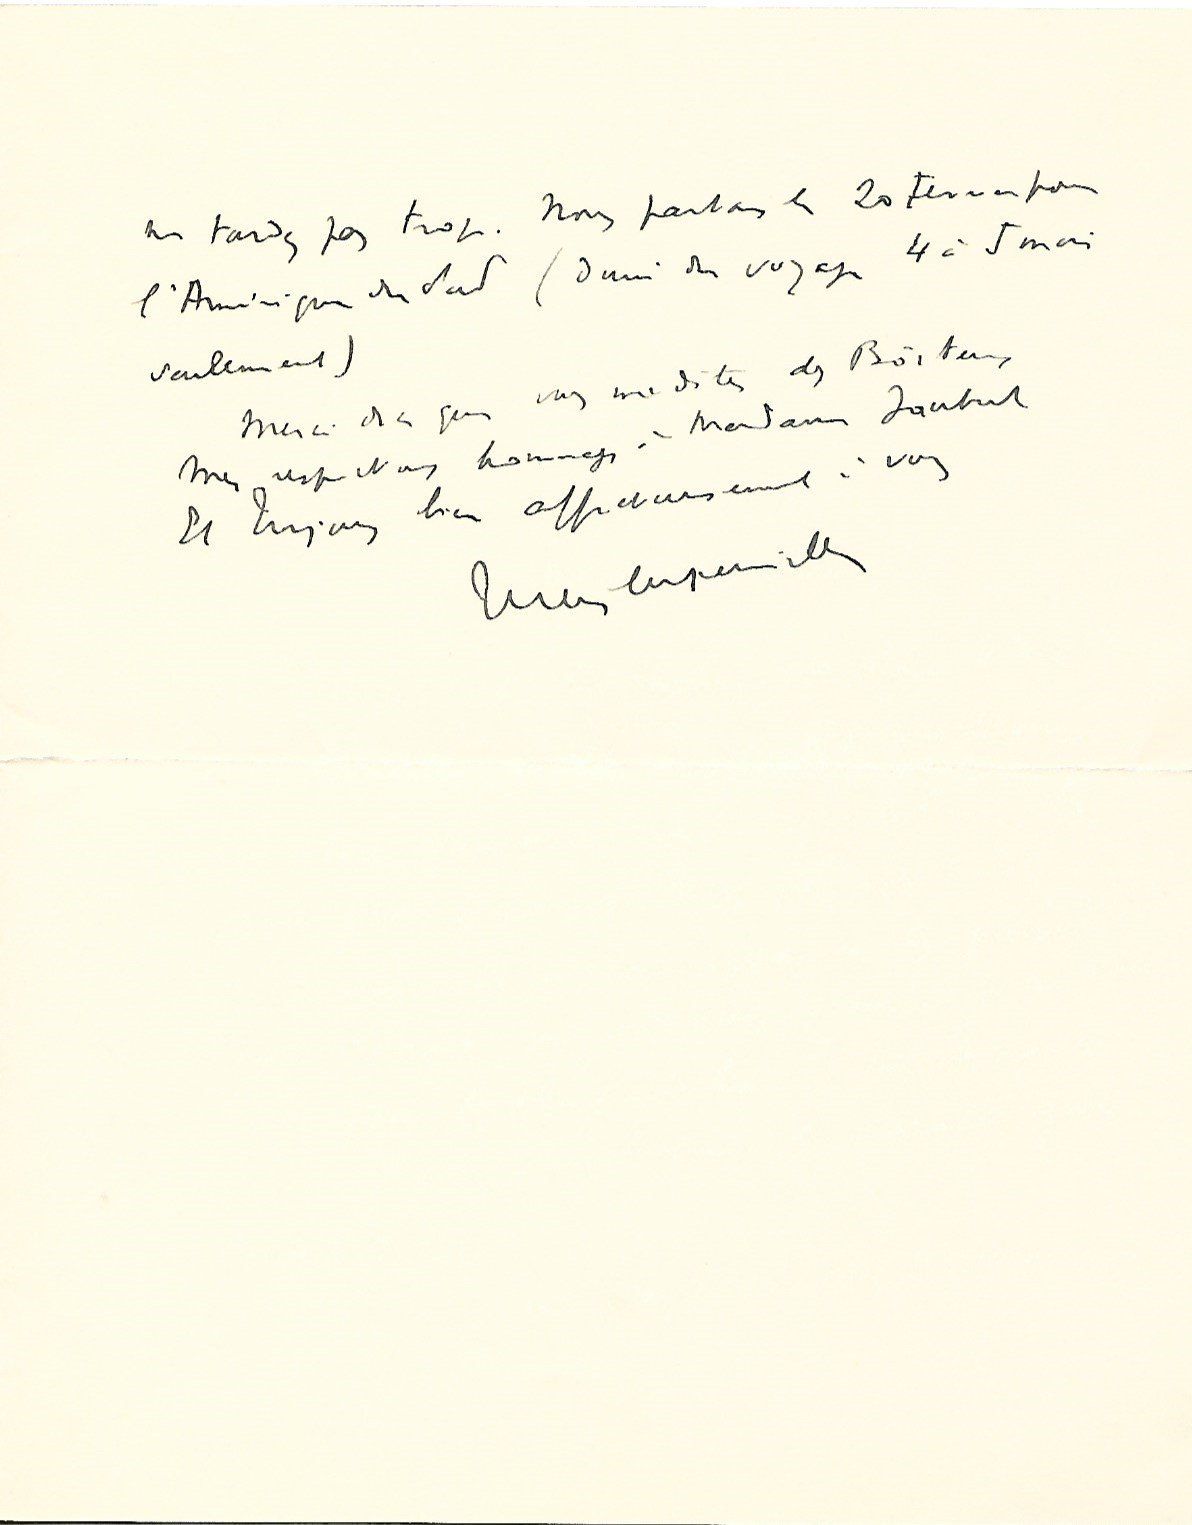 ne tardez pas trop. Nous partons le 20 Février pour
l'Amérique du Sud (durée du voyage 4 à 5 mois
seulement)
Merci de ce que vous me dites des B
Mes respectueux hommages à Madame Jaubert
Et toujours bien affectueusement à vous
Jules Supervielle